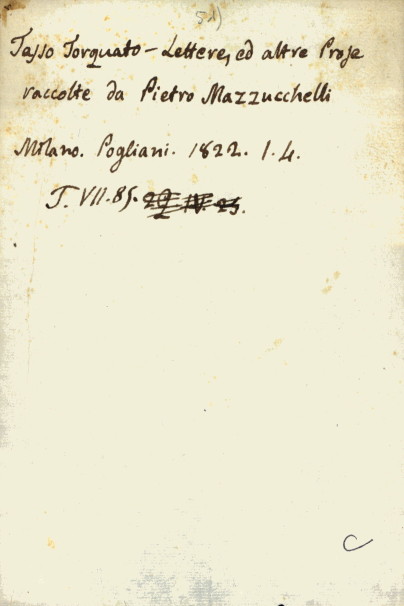 51)
Tasso Torquato - Lettere, ed altre Prose
raccolte da Pietro Mazzucchelli
Milano. Pogliani. 1822. 1.4.
T. VII. 85.
C